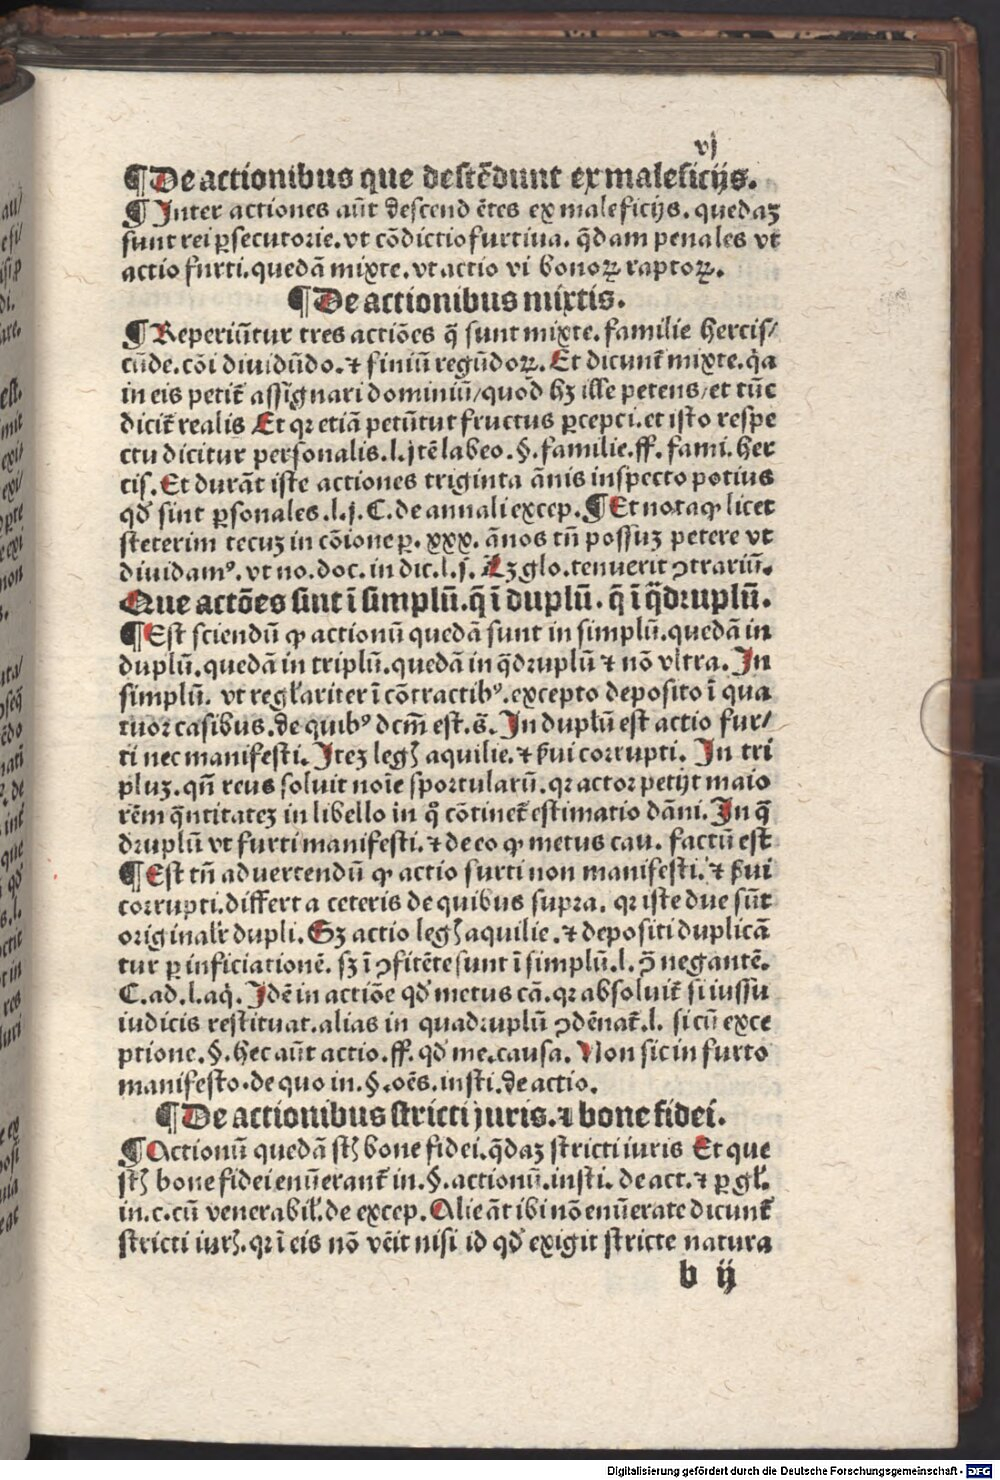 vj
¶De actionibus que descēdunt ex maleficijs.
¶Inter actiones aūt descend ētes ex maleficijs. quedaꝫ
sunt rei ꝑsecutorie. vt cōdictio furtiua. q̄dam penales vt
actio furti. quedā mixte. vt actio vi bonoꝝ raptoꝝ.
¶De actionibus mixtis.
¶Reperiūtur tres actiōes q̄ sunt mixte. familie hercis/
cūde. cōi diuidūdo. ⁊ finiū regūdoꝝ. Et dicunt̄ mixte. q̇a
in eis petit̄ assignari dominiū/quod hꝫ ille petens/et tūc
dicit̄ realis Et qꝛ etiā petūtur fructus ꝑcepti. et isto respe
ctu dicitur personalis. l. jtē labeo. §. familie. ff. fami. her
cis. Et durāt iste actiones triginta ānis inspecto potius
qd̓ sint ꝑsonales. l. j. C. de annali excep. ¶Et nota ꝙ licet
steterim tecuꝫ in cōione ꝑ. xxx. ānos tn̄ possuꝫ petere vt
diuidamꝰ. vt no. doc. in dic. l. j. Lꝫ glo. tenuerit ꝯtrariū.
Que actōes sint ī simplū. q̄ ī duplū. q̄ ī q̄druplū.
¶Est sciendū ꝙ actionū quedā sunt in simplū. quedā in
duplū. quedā in triplū. quedā in q̄druplū ⁊ nō vltra. In
simplū. vt regl̓ariter ī cōtractibꝰ. excepto deposito ī qua
tuor casibus. de quibꝰ dcm̄ est. s̄. In duplū est actio fur/
ti nec manifesti. Iteꝫ legꝭ aquilie. ⁊ ẜui corrupti. In tri
pluꝫ. qn̄ reus soluit noīe sportularū. qꝛ actor petijt maio
rēm q̄ntitateꝫ in libello in q̊ cōtinet̄ estimatio dāni. In q̄
druplū vt furti manifesti. ⁊ de eo ꝙ metus cau. factū est
¶Est tn̄ aduertendū ꝙ actio furti non manifesti. ⁊ ẜui
corrupti. differt a ceteris de quibus supra. qꝛ iste due sūt
originalr̓ dupli. Sꝫ actio legꝭ aquilie. ⁊ depositi duplicā
tur ꝑ inficiationē. sꝫ ī ꝯfitēte sunt ī simplū. l. ꝯ̄ negantē.
C. ad. l. aq̇. Idē in actiōe qd̓ metus cā. qꝛ absoluit̄ si iussu
iudicis restituat. alias in quadruplū ꝯdēnat̄. l. si cū exce
ptione. §. hec aūt actio. ff. qd̓ me. causa. Non sic in furto
manifesto. de quo in. §. oēs. insti. de actio.
¶De actionibus stricti juris. ⁊ bone fidei.
¶Actionū quedā st̄ bone fidei. q̄daꝫ stricti iuris Et que
st̄ bone fidei enūerant̄ in. §. actionū. insti. de act. ⁊ ꝑ gl̓.
in. c. cū venerabil̓. de excep. Alie āt ibi nō enūerate dicunt̄
stricti iurꝭ. qꝛ ī eis nō vēit nisi id qd̓ exigit stricte natura
b ij
Digitalisierung gefördert durch die Deutsche Forschungsgemeinschaft - DFG